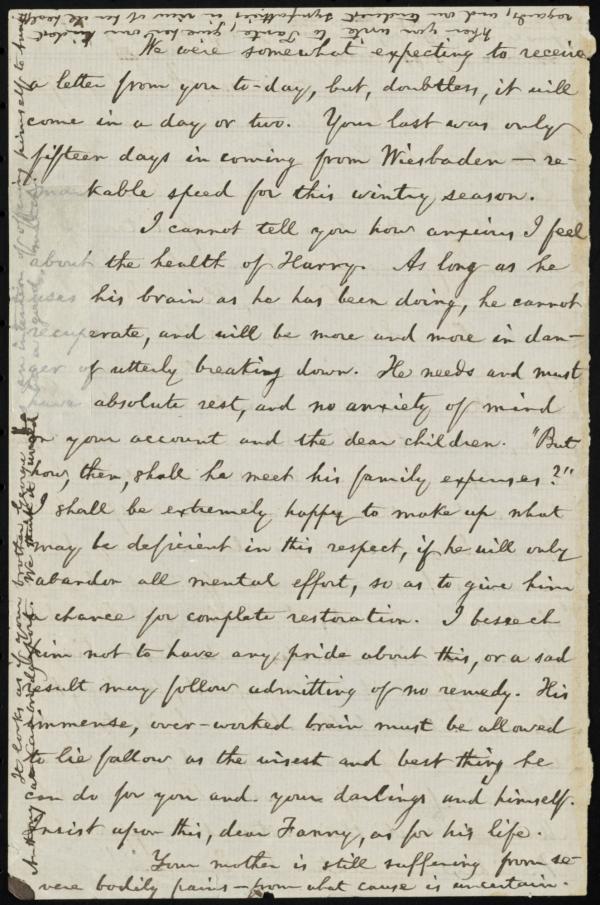 We were somewhat expecting to receive
a letter from you to-day, but, doubtless, it will
come in a day or two. Your last was only
fifteen days in coming from Wiesbaden — re-
markable speed for this wintry season.
I cannot tell you how anxious I feel
about the health of Harry. As long as he
uses his brain as he has been doing, he cannot
recuperate, and will be more and more in dan-
ger of utterly breaking down. He needs and must
have absolute rest, and no anxiety of mind
on your account and the dear children. "But
how, then, shall he meet his family expenses?"
I shall be extremely happy to make up what
may be deficient in this respect, if he will only
abandon all mental effort, so as to give him
a chance for complete restoration. I beseech
him not to have any pride about this, or a sad
result may follow admitting of no remedy. His
immense, over-worked brain must be allowed
to lie fallow as the wisest and best thing he
can do for you and your darlings and himself.
Insist upon this, dear Fanny, as for his life.
Your mother is still suffering from se-
vere bodily pains — from what cause is uncertain.
It looks as if your brother George has an intention of offering himself to
We think it
When you write to give her our kindest
regards, and our tenderest sympathies in view of her ill health